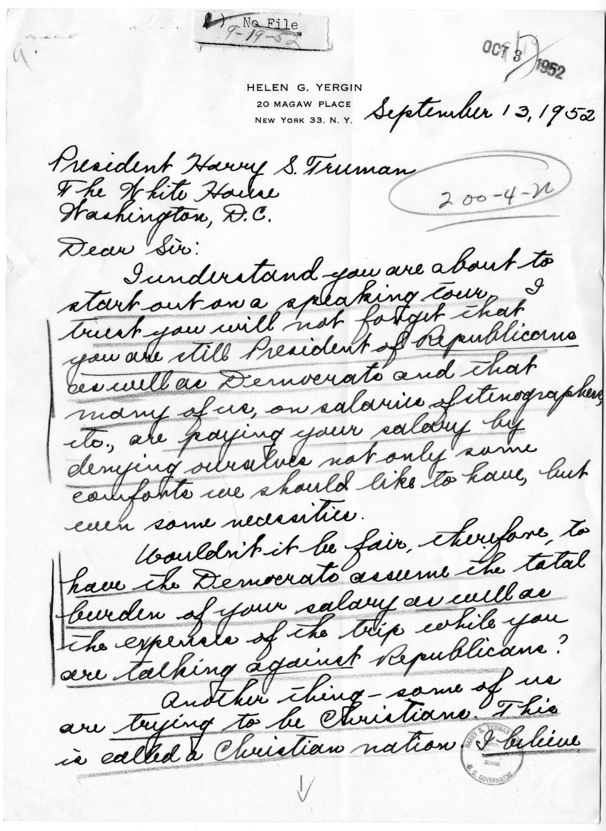 No File
9-19-52
OCT 3 1952
HELEN G. YERGIN
20 MAGAW PLACE
NEW YORK 33, N. Y.
September 13, 1952
President Harry S. Truman
The White House
Washington, D.C.
200-4-
Dear Sir:
I understand you are about to
start out on a speaking tour. I
trust you will not forget that
you are still President of Republicans
as well as Democrats and that
many of us, on salaries of stenographers,
etc., are paying your salary by
denying ourselves not only some
comforts we should like to have, but
even some necessities.
Wouldn't it be fair, therefore, to
have the Democrats assume the total
burden of your salary as well as
the expense of the trip while you
are talking against Republicans?
Another thing - some of us
are trying to be Christians. This
is called a Christian nation. I believe
HARRY S. TRUMAN
U. S. GOVERNMENT